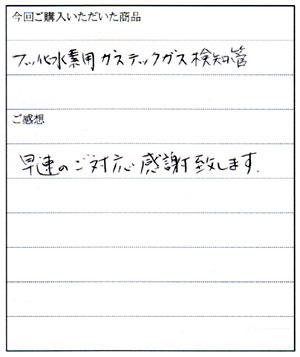 今回ご購入いただいた商品
フッ化水素用ガステックガス検知管
ご感想
早速のご対応感謝致します.